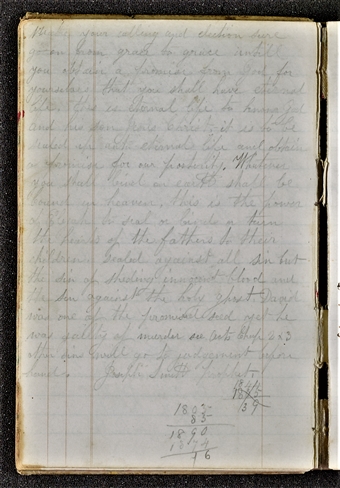 your calling and election sure
go on from grace to grace untill
you obtain a promise from God for
yourselves that you shall have eternal
life. this is eternal life to know God
and his son Jesus Christ, it is to be
sealed up unto eternal life and obtain
a promise for our posterity. Whatever
you shall bind on earth shall be
bound in heaven, this is the power
of Elijah to seal or bind or turn
the hearts of the fathers to their
children sealed against all sin but
the sin of sheding innocent blood and
the sin against the holy ghost David
was one of the promised seed yet he
was guilty of murder see acts chap 2 x 3
men will go to judgement
Joseph Smith
39
1803
83
1890
1874
16